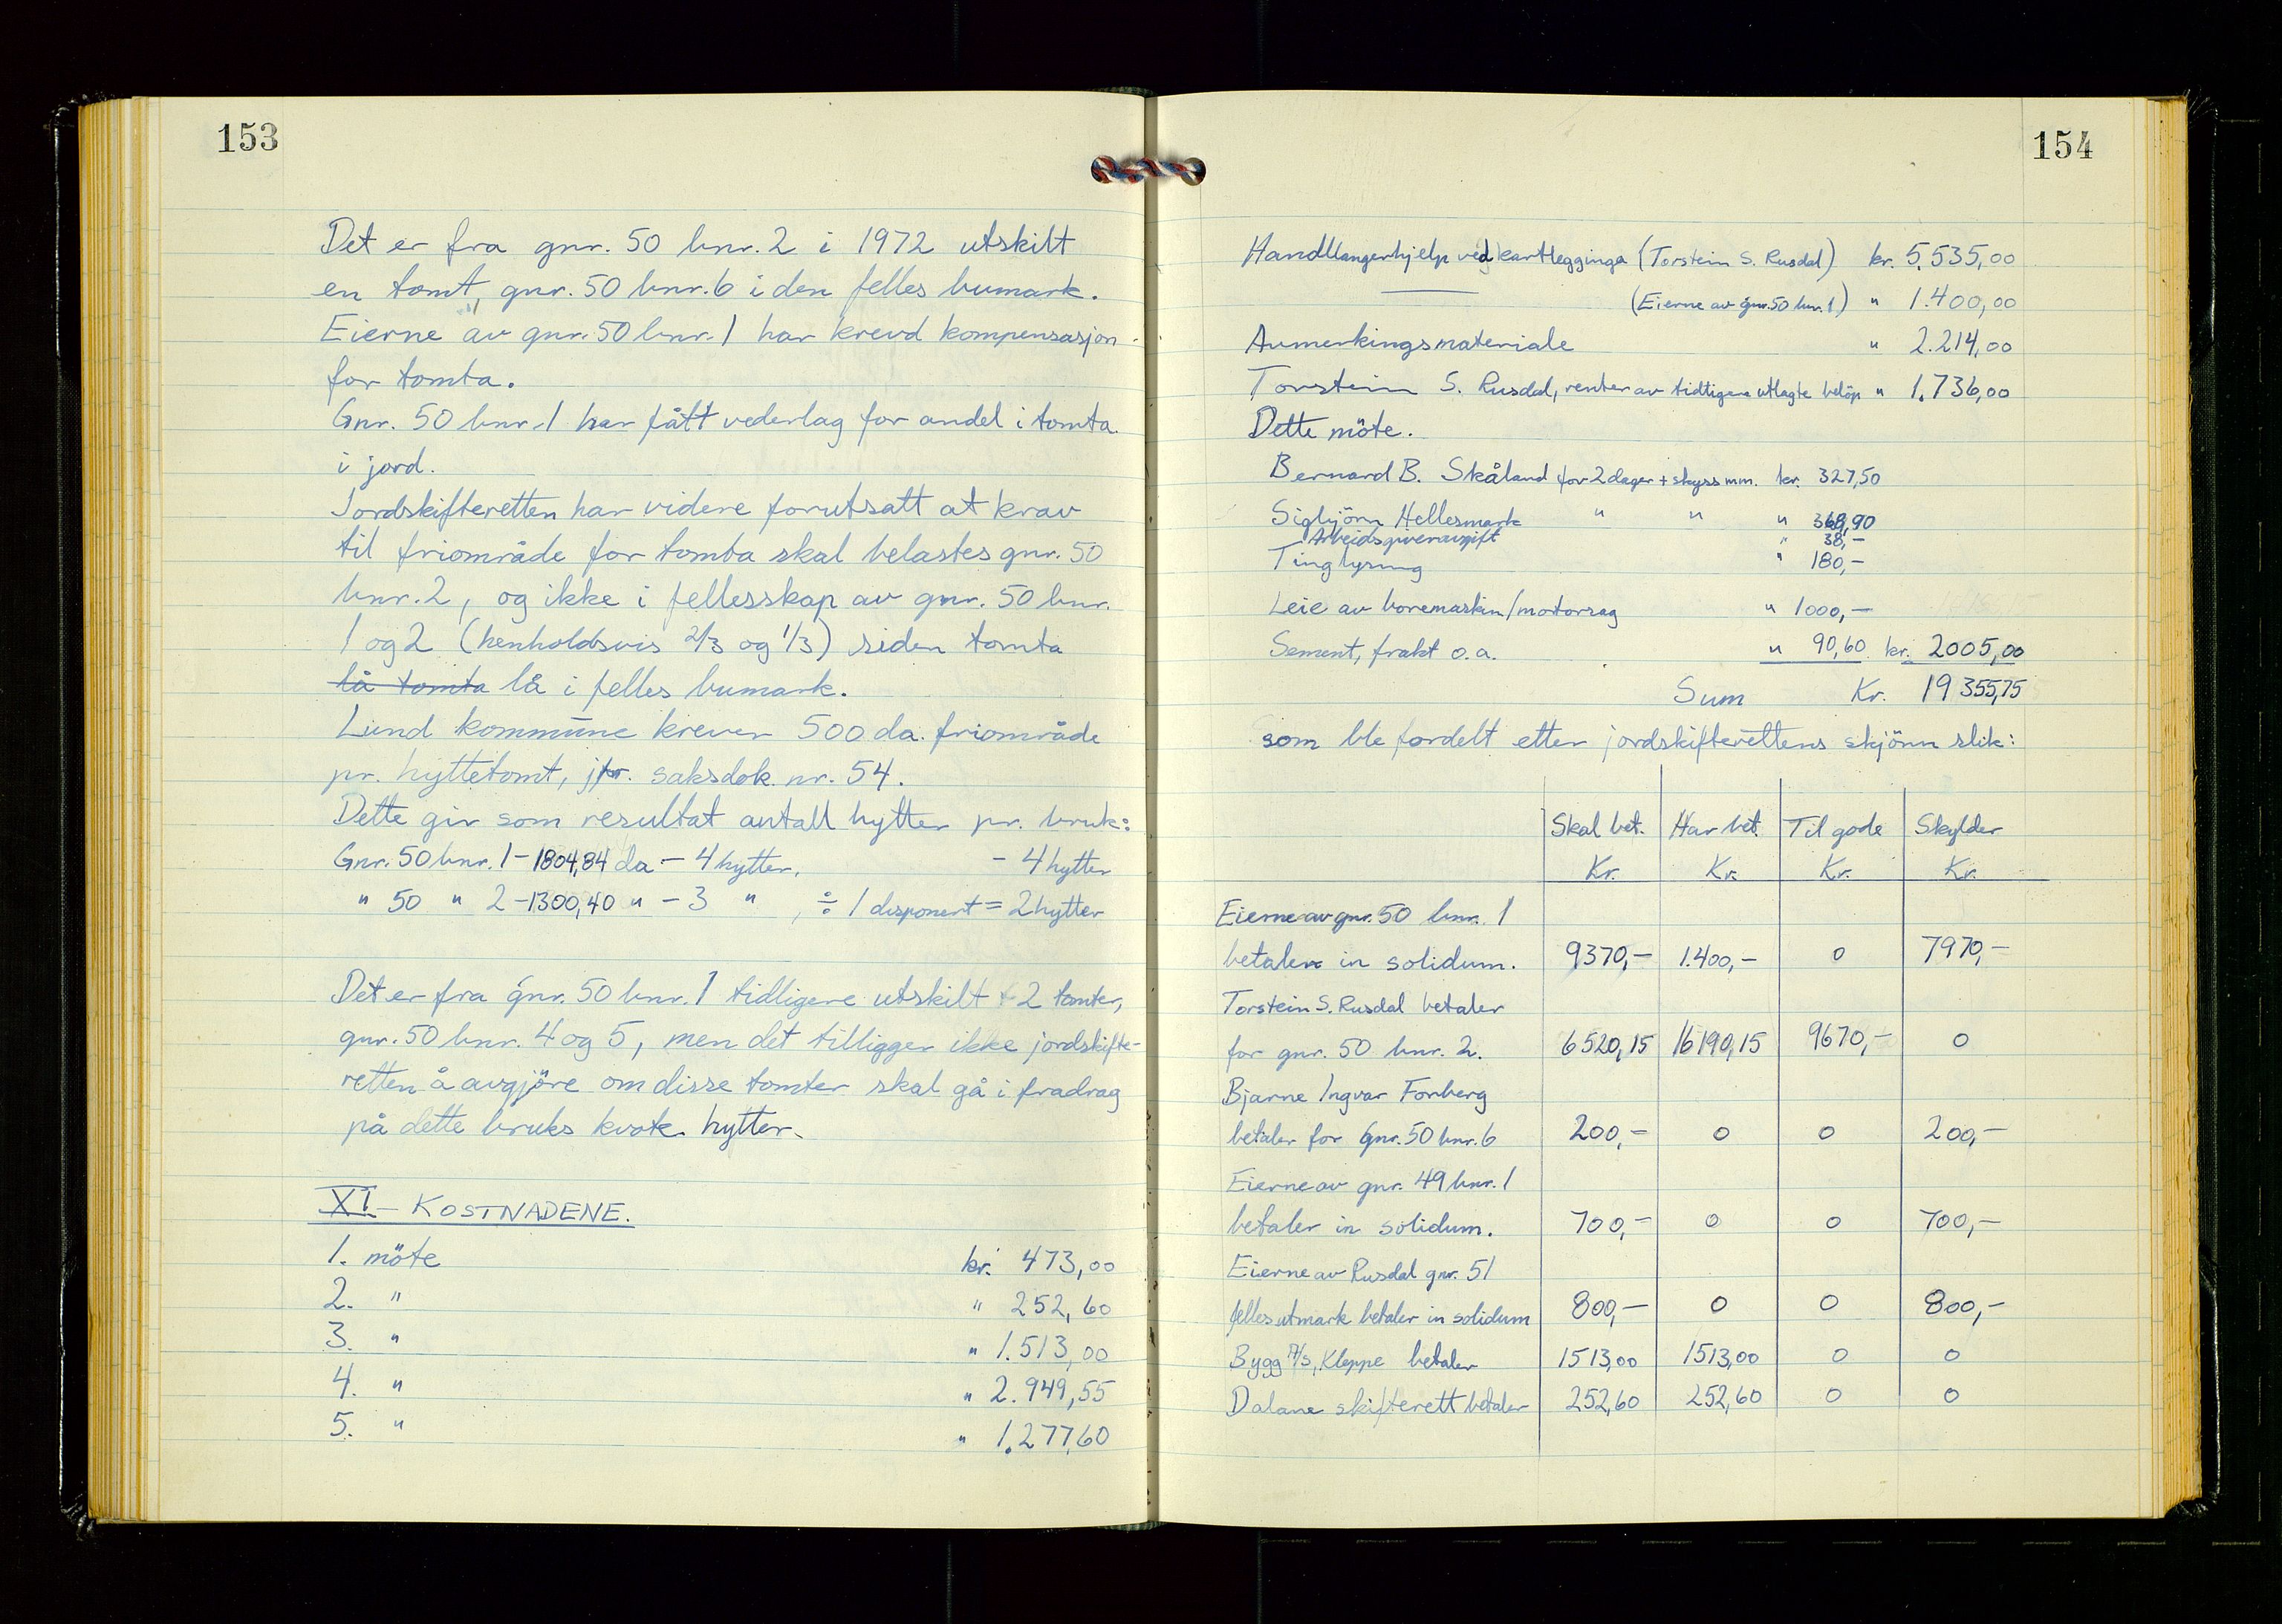 153
Det er fra gnr. 50 bnr. 2 i 1972 utskilt
en tomt, gnr. 50 bnr. 6 i den felles bumark.
Eierne av gnr. 50 bnr. 1 har krevd kompensasjon
for tomta.
Gnr. 50 bnr. 1 har fått vederlag for andel i tomta
i jord.
Jordskifteretten har videre forutsatt at krav
til friområde for tomta skal belastes gnr. 50
bnr. 2, og ikke i fellesskap av gnr. 50 bnr.
1 og 2 (henholdsvis 2/3 og 1/3) siden tomta
lå tomta lå i felles bumark.
Lund kommune krever 500 da. friområde
pr. hyttetomt, jfr. saksdok. nr. 54.
Dette gir som resultat antall hytter pr. bruk:
Gnr. 50 bnr. 1 - 1804,84 da - 4 hytter, - 4 hytter
" 50 " 2 - 1300,40 " - 3 " , ÷ 1 disponert = 2 hytter
Det er fra gnr. 50 bnr. 1 tidligere utskilt 2 tomter,
gnr. 50 bnr. 4 og 5, men det tilligger ikke jordskifte-
retten å avgjöre om disse tomter skal gå i fradrag
på dette bruks kvote hytter.
XI - KOSTNADENE.
1. möte kr. 473,00
2. " " 252,60
3. " " 1.513,00
4. " " 2.949,55
5. " " 1.277,60
154
Handllangerhjelp ved kartlegginga (Torstein S. Rusdal) kr. 5.535,00
—— (Eierne av gnr. 50 bnr. 1) " 1.400,00
Avmerkingsmateriale " 2.214,00
Torstein S. Rusdal, renter av tidligere utlagte belöp " 1.736,00
Dette möte.
Bernard B. Skåland for 2 dager + skyss mm. kr. 327,50
Sigbjörn Hellesmark " " " 368,90
Arbeidsgiveravgift " 38,-
Tinglysning " 180,-
Leie av boremaskin/motorsag " 1000,-
Sement, frakt o.a. " 90,60 kr. 2005,00
Sum Kr. 19 355,75
som ble fordelt etter jordskifterettens skjönn slik:
Skal bet. Har bet. Til gode Skylder
Kr. Kr. Kr. Kr.
Eierne av gnr. 50 bnr. 1
betaler in solidum. 9370,- 1.400,- 0 7970,-
Torstein S. Rusdal betaler
for gnr. 50 bnr. 2. 6520,15 16190,15 9670,- 0
Bjarne Ingvar Forberg
betaler for Gnr. 50 bnr. 6 200,- 0 0 200,-
Eierne av gnr. 49 bnr. 1
betaler in solidum. 700,- 0 0 700,-
Eierne av Rusdal gnr. 51
felles utmark betaler in solidum 800,- 0 0 800,-
Bygg A/S, Kleppe betaler 1513,00 1513,00 0 0
Dalane skifterett betaler 252,60 252,60 0 0